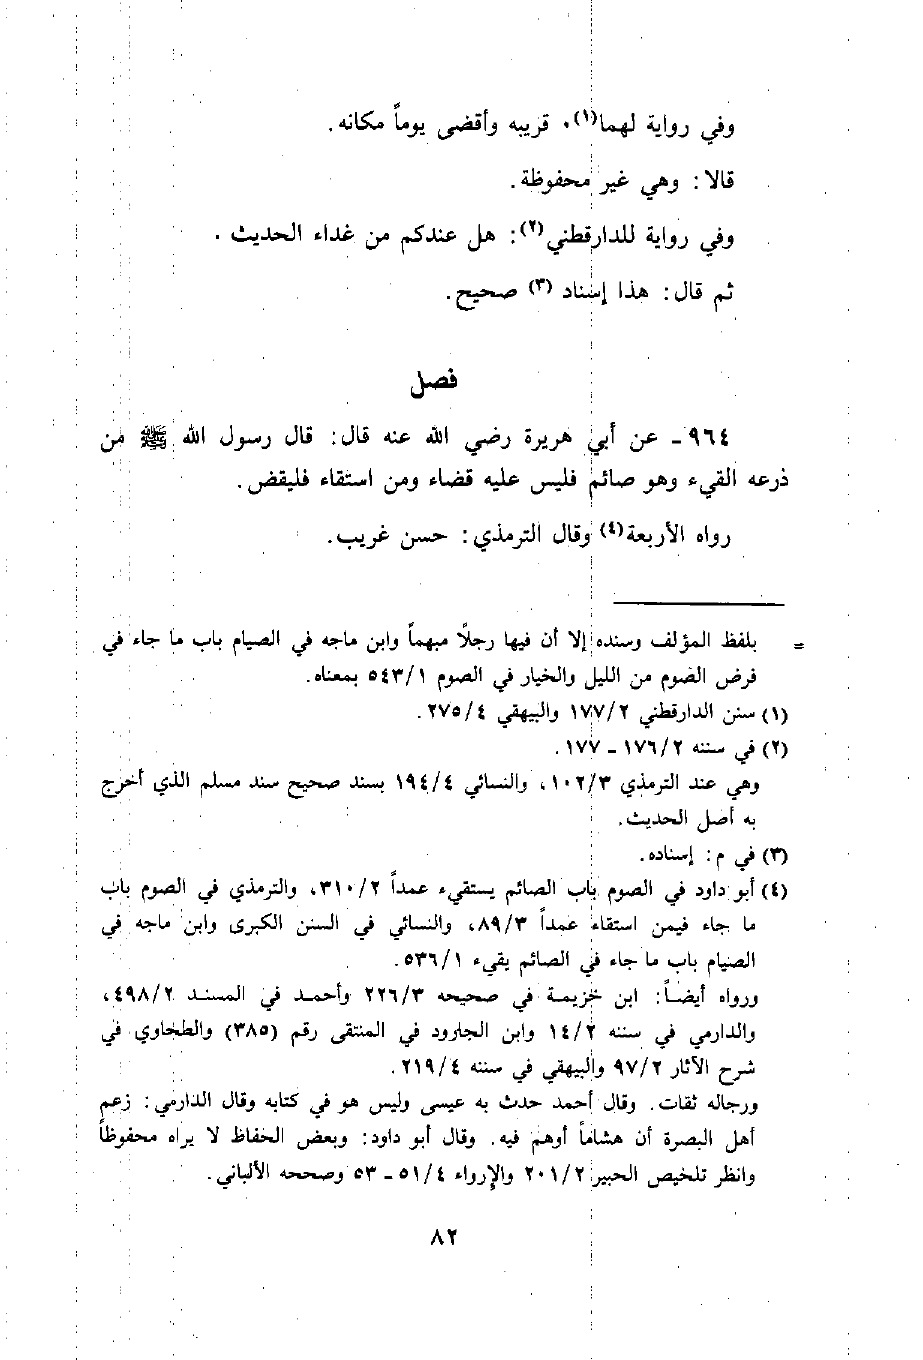 وفي رواية لهما(١)٠ قريبه وأقضى يوماً مكانه.
قالا: وهي غير محفوظة.
وفي رواية للدارقطني(٢): هل عندكم من غداء الحديث.
ثم قال: هذا إسناد (٣) صحيح.
فصل
٩٦٤ـ عن أبي هريرة رضي الله عنه قال: قال رسول الله ﷺ من
ذرعه القيء وهو صائم فليس عليه قضاء ومن استقاء فليقض.
رواه الأربعة(٤) وقال الترمذي: حسن غريب.
= بلفظ المؤلف وسنده إلا أن فيها رجلاً مبهماً وابن ماجه في الصيام باب ما جاء في
فرض الصوم من الليل والخيار في الصوم ٥٤٣/١ بمعناه.
(١) سنن الدارقطني ١٧٧/٢ والبيهقي ٢٧٥/٤.
(٢) في سننه ١٧٦/٢ ـ ١٧٧.
وهي عند الترمذي ١٠٢/٣، والنسائي ١٩٤/٤ بسند صحيح سند مسلم الذي أخرج
به أصل الحديث.
(٣) في م: إسناده.
(٤) أبو داود في الصوم باب الصائم يستقيء عمداً ٣١٠/٢، والترمذي في الصوم باب
ما جاء فيمن استقاء عمداً ٨٩/٣، والنسائي في السنن الكبرى وابن ماجه في
الصيام باب ما جاء في الصائم يقيء ٥٣٦/١.
ورواه أيضاً: ابن خزيمة في صحيحه ٢٢٦/٣ وأحمد في المسند ٤٩٨/٢،
والدارمي في سننه ١٤/٢ وابن الجارود في المنتقى رقم (٣٨٥) والطحاوي في
شرح الآثار ٩٧/٢ والبيهقي في سننه ٢١٩/٤.
ورجاله ثقات. وقال أحمد حدث به عيسى وليس هو في كتابه وقال الدارمي: زعم
أهل البصرة أن هشاماً أوهم فيه. وقال أبو داود: وبعض الحفاظ لا يراه محفوظاً
وانظر تلخيص الحبير ٢٠١/٢ والإرواء ٥١/٤ ـ ٥٣ وصححه الألباني.
٨٢